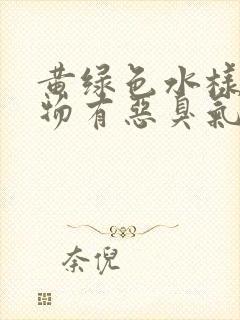 黄绿色水樣
物有惡臭氣
奈倪